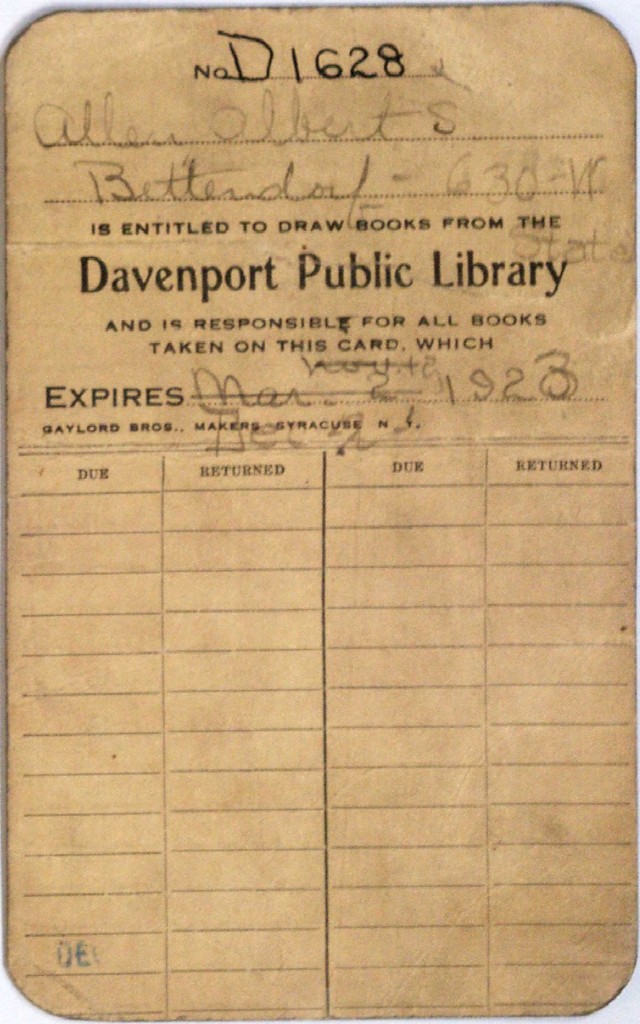 No. D1628
Allen Albert S.
Bettendorf - 630-W
State
IS ENTITLED TO DRAW BOOKS FROM THE
Davenport Public Library
AND IS RESPONSIBLE FOR ALL BOOKS
TAKEN ON THIS CARD, WHICH
EXPIRES Mar. 2 1923
GAYLORD BROS., MAKERS, SYRACUSE N.
Dec 2
DUE RETURNED DUE RETURNED